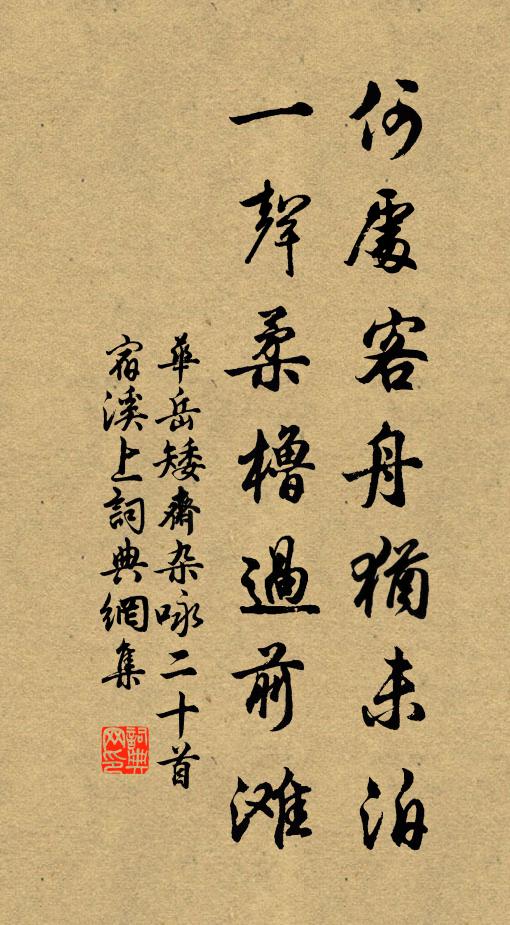 何處客舟猶未泊
一聲柔櫓過前滩
華岳矮齋杂咏二十首
宿溪上詞典網集
詞典网印